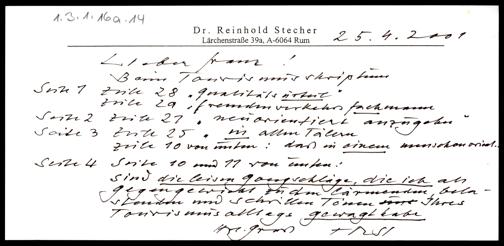 1.3.1.16a.14
Dr. Reinhold Stecher
Lärchenstraße 39a, A-6064 Rum
25.4.2001
Lieber Franz!
Beim Tourismusskriptum
Seite 1 Zeile 28 „Qualitätsurteil"
Zeile 29 „fremdenverkehrsfachmann
Seite 2 Zeile 27 „neuorientiert
Seite 3 Zeile 25 „in allen Tälern
Zeile 10 von unten: das in einem
Seite 4 Seite 10 und 11 von unten:
sind die leisen Gongschläge, die ich als
Gegengewicht zu den lärmenden, bela-
stenden und schrillen Tönen Ihres
Tourismusalltags gewagt habe